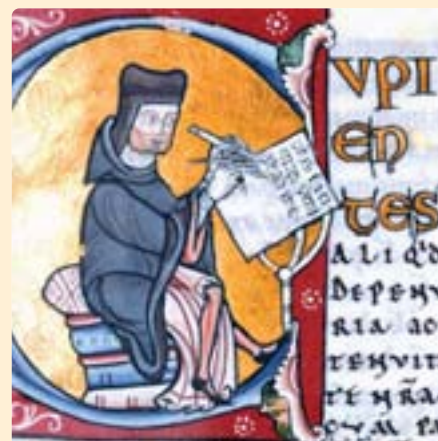 CVPI
EN
TES
ALIQ'D
DEPENV
RIA AC
TENVIT
TE NR̄A
CVM PA